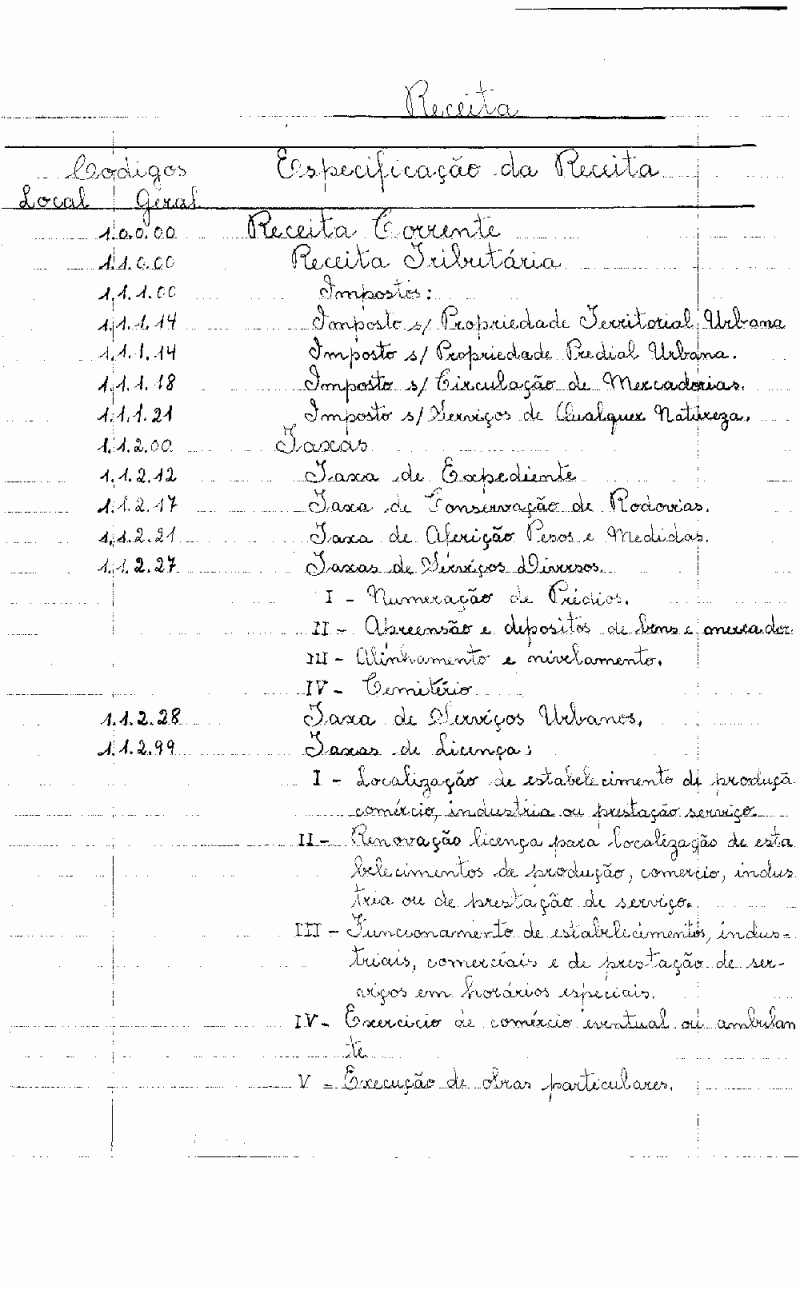 Receita
Codigos Especificação da Receita
Local Geral
1.0.0.00 Receita Corrente
1.1.0.00 Receita Tributária
1.1.1.00 Impostos:
1.1.1.14 Imposto s/ Propriedade Territorial Urbana
1.1.1.14 Imposto s/ Propriedade Predial Urbana.
1.1.1.18 Imposto s/ Circulação de Mercadorias.
1.1.1.21 Imposto s/ Serviços de Qualquer Natureza.
1.1.2.00 Taxas
1.1.2.12 Taxa de Expediente
1.1.2.17 Taxa de Conservação de Rodovias.
1.1.2.21 Taxa de Aferição Pesos e Medidas.
1.1.2.27 Taxas de Serviços Diversos.
I - Numeração de Prédios.
II - Apreensão e depositos de bens e
III - Alinhamento e nivelamento.
IV - Cemitério
1.1.2.28 Taxa de Serviços Urbanos.
1.1.2.99 Taxas de Licença:
I - Localização de estabelecimento de produçã
comércio, industria ou prestação serviço.
II - Renovação licença para localização de esta
belecimentos de produção, comercio, indus
tria ou de prestação de serviço.
III - Funcionamento de estabelecimentos, indus-
triais, comerciais e de prestação de ser-
viços em horários especiais.
IV - Exercicio de comércio eventual ou ambulan
te
V - Execução de obras particulares.